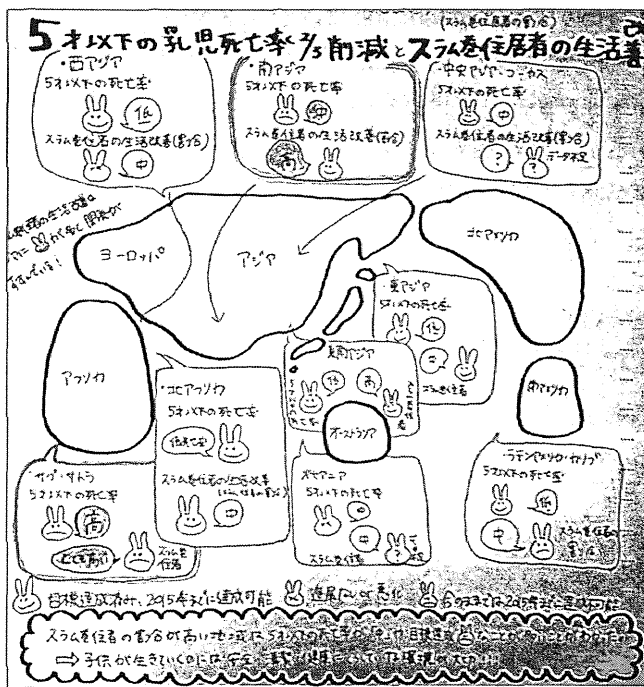 (スラム住居者の割合)
5才以下の乳児死亡率 2/3 削減とスラム住居者の生活改善
・西アジア
5才以下の死亡率
低
スラム住者の生活改善(割合)
中
・南アジア
5才以下の死亡率
中
スラム住者の生活改善(割合)
高
・中央アジア・コーカサス
5才以下の死亡率
中
スラム住者の生活改善(割合)
?
?
データ不足
ヨーロッパ
アジア
北アメリカ
アフリカ
南アメリカ
オーストラリア
・東アジア
5才以下の死亡率
低
中
スラム住者
東南アジア
低
高
・北アフリカ
5才以下の死亡率
低
スラム住者の生活改善
中
・サブ・サハラ
5才以下の死亡率
高
とても高い
スラム住者
オセアニア
5才以下の死亡率
中
中
?
スラム住者
・ラテンアメリカ・カリブ
5才以下の死亡率
低
中
スラム住者の割合
目標達成済み、2015年までに達成可能
進展なしか悪化
今のままでは2015年までに達成不可能
スラム住者の割合が高い地域は5才以下の死亡率が
⇒子供が生きていくのには